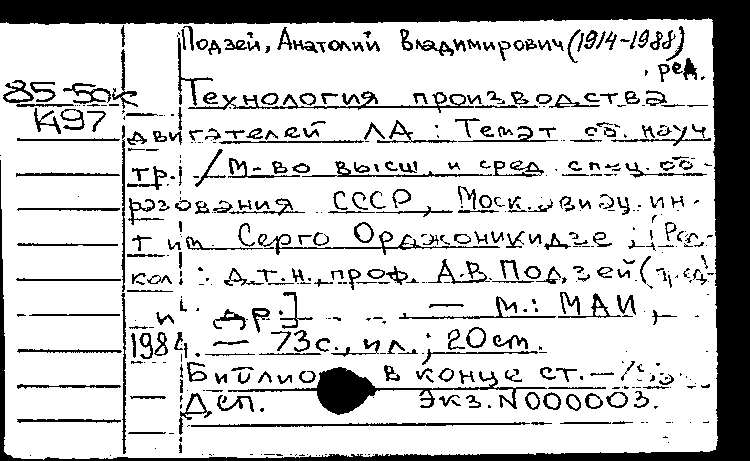 Подзей, Анатолий Владимирович (1914-1988)
, ред.
85-50к Технология производства
К97 двигателей ЛА : Темат сб. науч
тр. / М-во высш. и сред. спец. об-
разования СССР, Моск. авиац. ин-
т им. Серго Орджоникидзе ; [Ред-
кол : д.т.н., проф. А.В. Подзей (пред)
и др.] . — М.: МАИ,
1984. — 73с., ил. ; 20см.
в конце ст. —
Дсп. Экз. N000003.